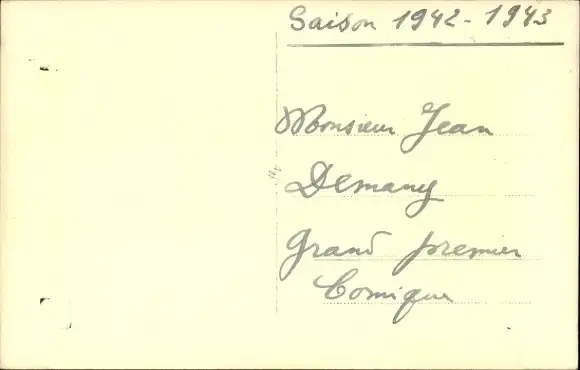 Saison 1942-1943
Monsieur Jean
Demany
Grand premier
Comique